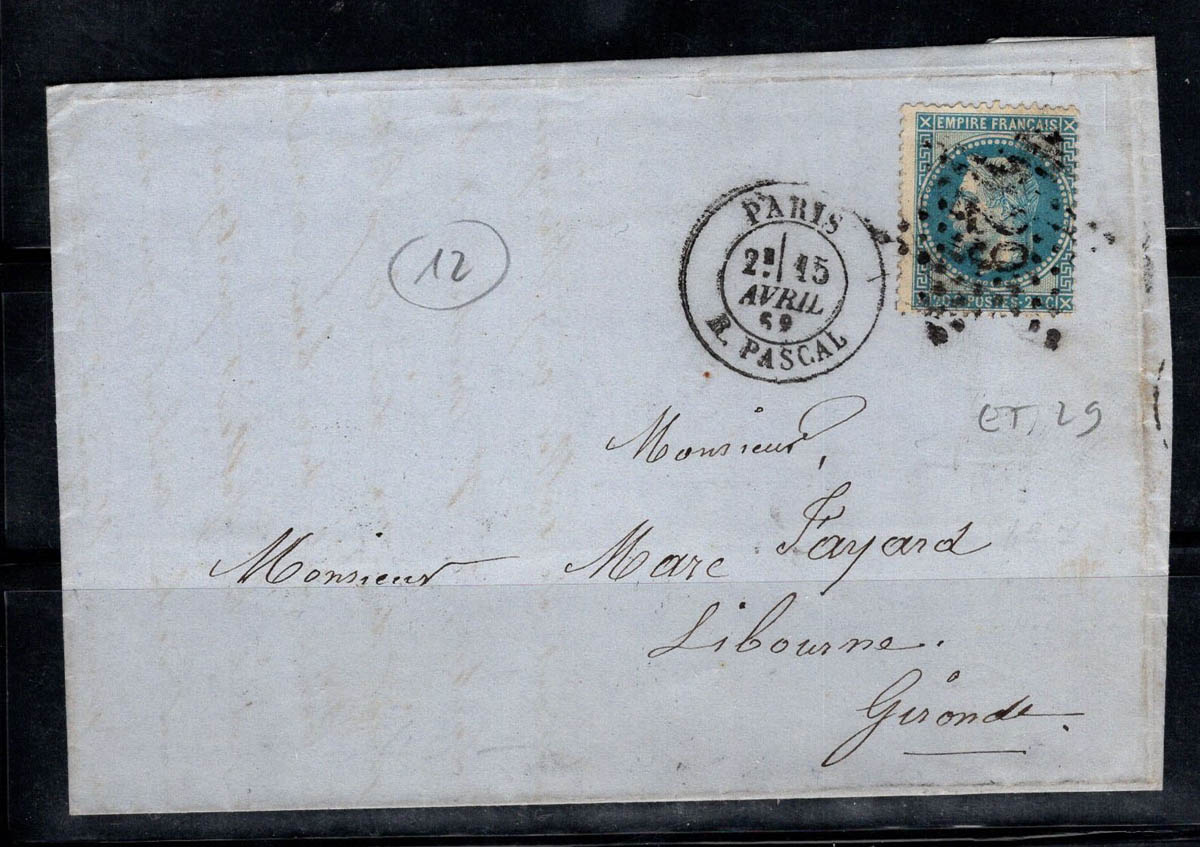 EMPIRE FRANÇAIS
29
20 C POSTES - 20 C
PARIS
2E 15
AVRIL
69
R. PASCAL
12
ET, 29
Monsieur,
Monsieur Marc Fayard
Libourne.
Gironde.